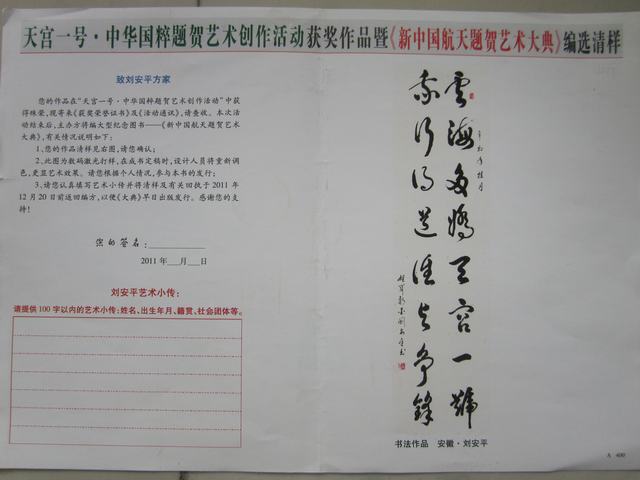 天宫一号·中华国粹题贺艺术创作活动获奖作品暨《新中国航天题贺艺术大典》编选清样
致刘安平方家
您的作品在“天宫一号·中华国粹题贺艺术创作活动”中获
得殊荣,现寄来《获奖荣誉证书》及《活动通讯》,请查收。本次活
动结束后,主办方将编大型纪念图书——《新中国航天题贺艺术
大典》,有关情况说明如下:
1、您的作品清样见右图,请您确认;
2、此图为数码激光打样,在成书定稿时,设计人员将重新调
色,更显艺术效果。请您根据个人情况,参与本书的发行;
3、请您认真填写艺术小传并将清样及有关回执于 2011 年
12 月 20 日前返回编方,以便《大典》早日出版发行。感谢您的支
持!
您的签名:
2011 年___月___日
刘安平艺术小传:
请提供 100 字以内的艺术小传:姓名、出生年月、籍贯、社会团体等。
云海多娇天宫一号
谁与争锋
书法作品 安徽·刘安平
A 400